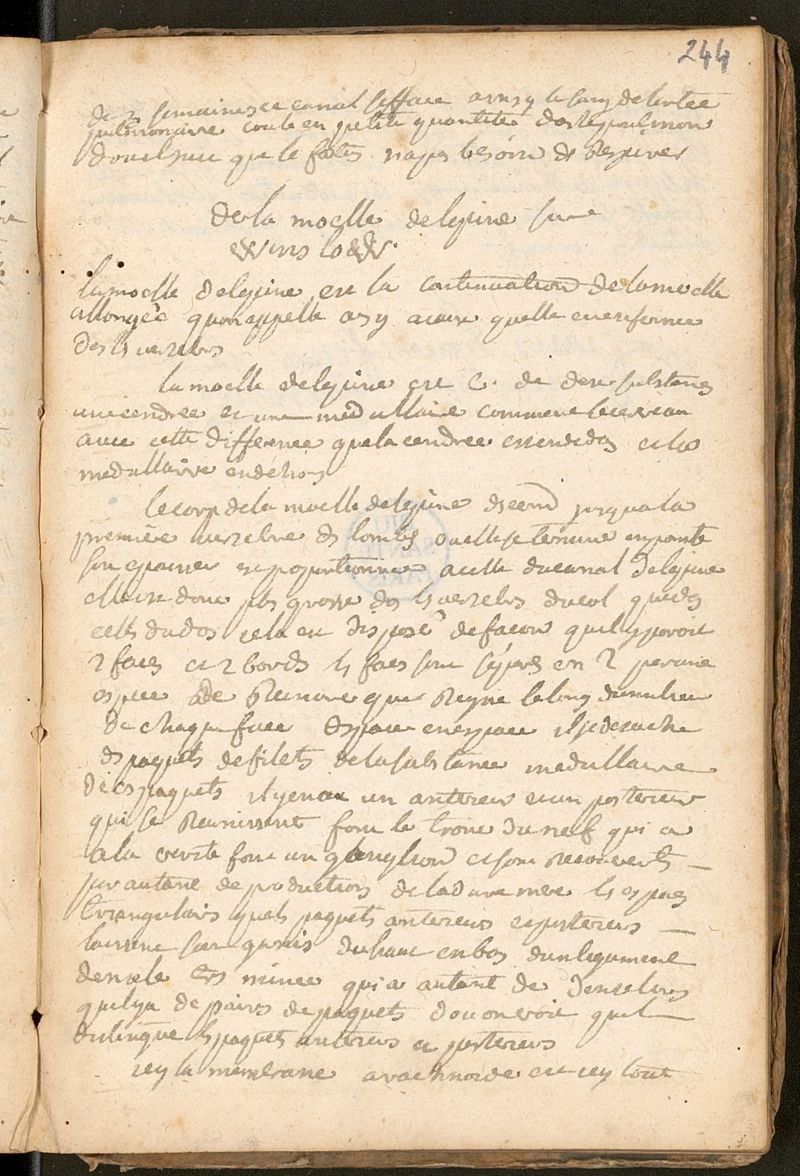 244
de semaines ce canal seffacé ainsy le sang de lartee
pulmonaire coule en petite quantité dans le poulmon
dou el suit que le foetus na pas besoin de Respirer
de la moelle delepine sur
Winslow
la moelle delepine est la continuation de la moelle
allongée quon appelle ainsy quelle est renfermee
des vertebres
la moelle delepine est C. de deux substances
une cendree et une medullaire comme le cerveau
avec cette difference que la cendree est en dedas et la
medullaire en dehors
le corp de la moelle delepine descend jusqua la
premiere vertebre des lombes ou elle se termine en pointe
son epaisseur est proportionnee a celle du canal delepine
elle est donc plus grosse des vertebres du col que des
celles du dos cela est disposé de facon quil y paroit
2 faces et 2 bords ls faces sont separes en 2 par une
espece de Reinure que Regne le long du milieu
de chaque face despace en espace il se detache
des paquets de filets de la substance medullaire
de ces paquets il y en a un anterieur et un posterieur
qui se Reunissent font le tronc du nerf qui a
a la verité font un ganglion et sont Recouverts
par autant de productions de la dure mere ls espaces
triangulairs quels paquets anterieurs et posterieurs
laissent sont garnis du haut en bas dun ligament
dentele tres mince qui a autant de dentelures
quil y a de paires de paquets dou on voit quil
distingue ls paquets anterieurs et posterieurs
icy la membrane arachnoide est icy tout